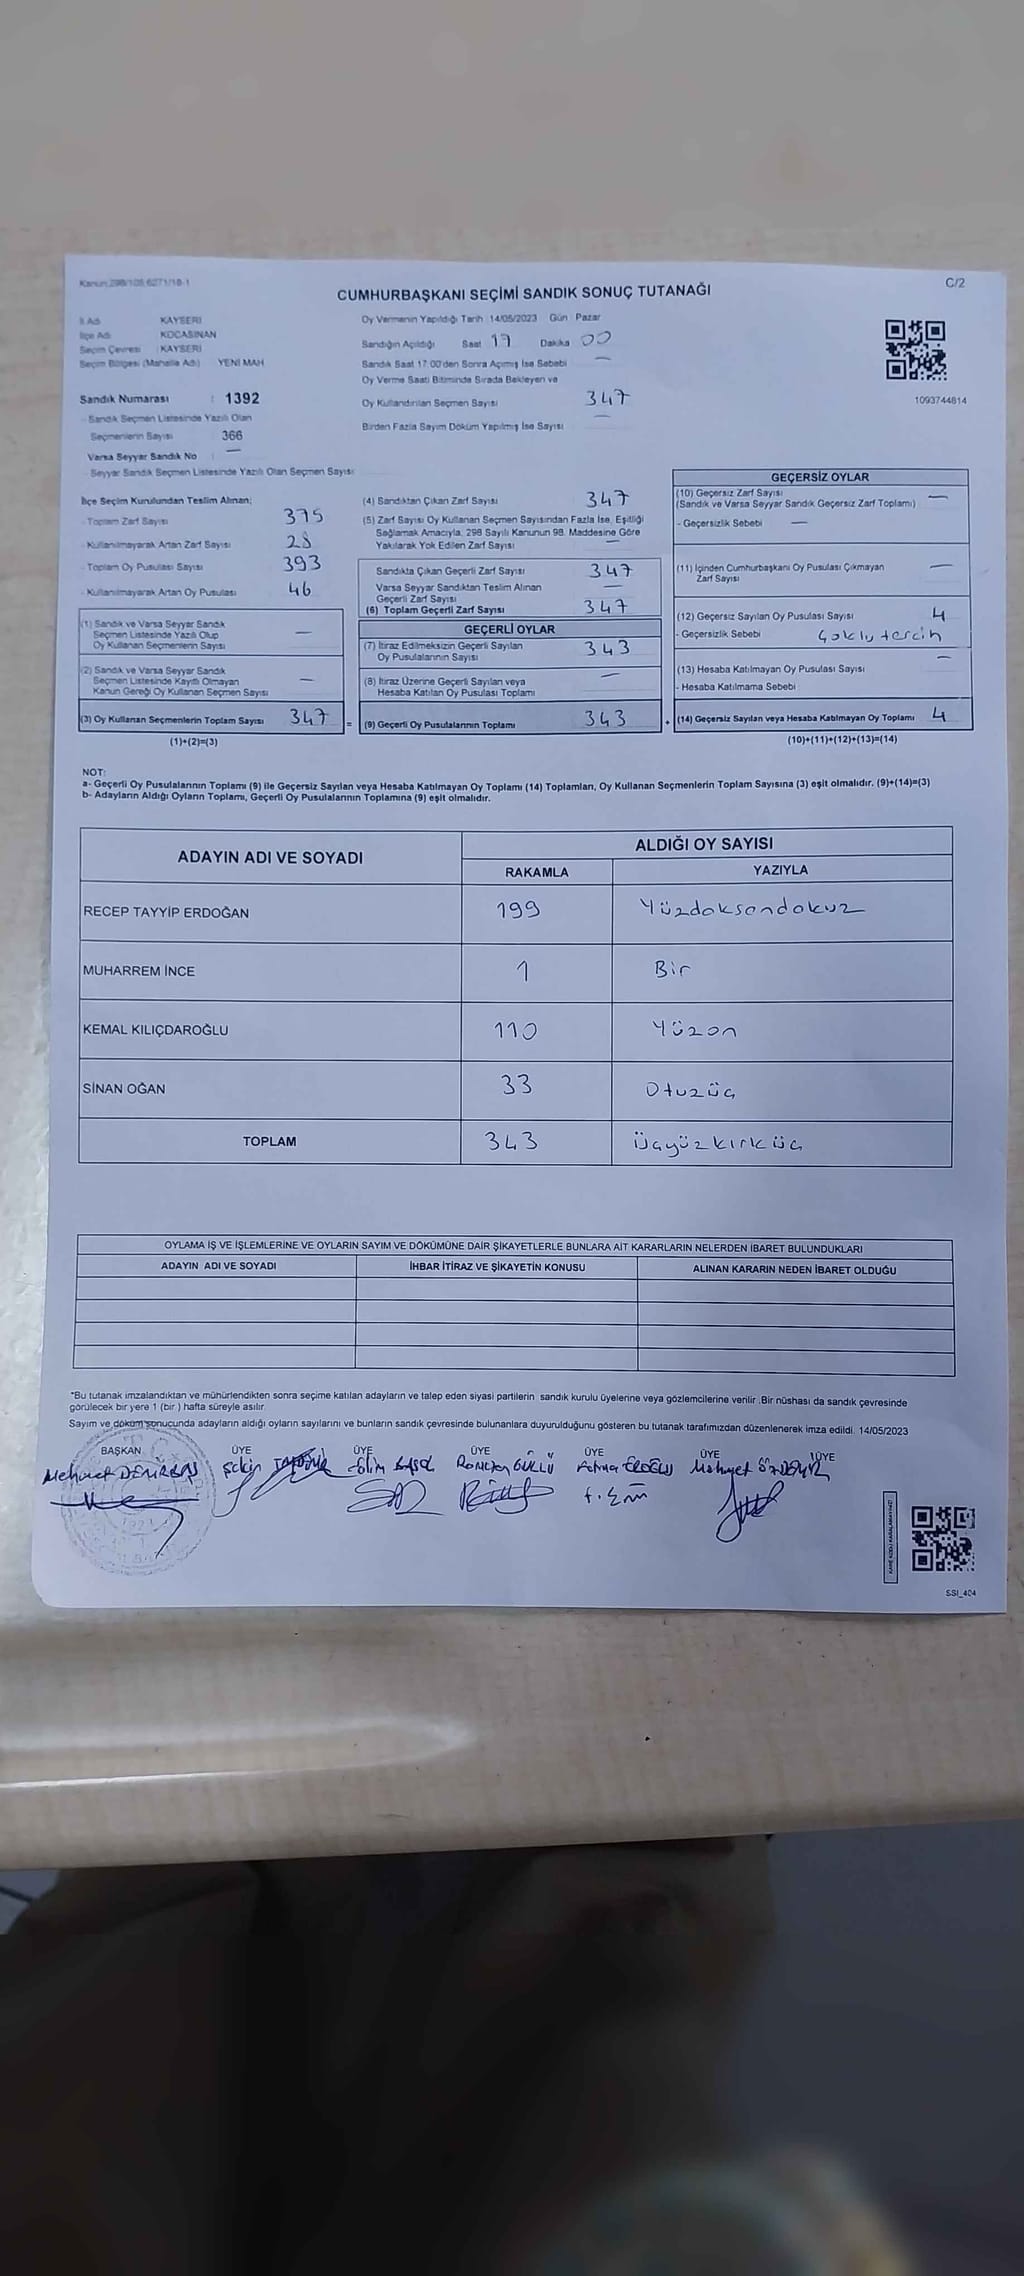 Kanun:298/105,6271/18-1
C/2
CUMHURBAŞKANI SEÇİMİ SANDIK SONUÇ TUTANAĞI
İl Adı KAYSERİ
İlçe Adı KOCASİNAN
Seçim Çevresi : KAYSERİ
Seçim Bölgesi (Mahalle Adı) YENİ MAH
Sandık Numarası : 1392
- Sandık Seçmen Listesinde Yazılı Olan
Seçmenlerin Sayısı 366
Varsa Seyyar Sandık No : —
- Seyyar Sandık Seçmen Listesinde Yazılı Olan Seçmen Sayısı
Oy Vermenin Yapıldığı Tarih 14/05/2023 Gün Pazar
Sandığın Açıldığı Saat 17 Dakika 00
Sandık Saat 17:00'den Sonra Açımış İse Sebebi —
Oy Verme Saati Bitiminde Sırada Bekleyen ve
Oy Kullandırılan Seçmen Sayısı 347
Birden Fazla Sayım Döküm Yapılmış İse Sayısı —
1093744814
İlçe Seçim Kurulundan Teslim Alınan;
- Toplam Zarf Sayısı 375
- Kullanılmayarak Artan Zarf Sayısı 28
- Toplam Oy Pusulası Sayısı 393
- Kullanılmayarak Artan Oy Pusulası 46
(1) Sandık ve Varsa Seyyar Sandık
Seçmen Listesinde Yazılı Olup
Oy Kullanan Seçmenlerin Sayısı —
(2) Sandık ve Varsa Seyyar Sandık
Seçmen Listesinde Kayıtlı Olmayan
Kanun Gereği Oy Kullanan Seçmen Sayısı —
(3) Oy Kullanan Seçmenlerin Toplam Sayısı 347 =
(1)+(2)=(3)
(4) Sandıktan Çıkan Zarf Sayısı 347
(5) Zarf Sayısı Oy Kullanan Seçmen Sayısından Fazla İse, Eşitliği
Sağlamak Amacıyla, 298 Sayılı Kanunun 98. Maddesine Göre
Yakılarak Yok Edilen Zarf Sayısı —
Sandıkta Çıkan Geçerli Zarf Sayısı 347
Varsa Seyyar Sandıktan Teslim Alınan
Geçerli Zarf Sayısı —
(6) Toplam Geçerli Zarf Sayısı 347
GEÇERLİ OYLAR
(7) İtiraz Edilmeksizin Geçerli Sayılan
Oy Pusulalarının Sayısı 343
(8) İtiraz Üzerine Geçerli Sayılan veya
Hesaba Katılan Oy Pusulası Toplamı —
(9) Geçerli Oy Pusulalarının Toplamı 343 +
GEÇERSİZ OYLAR
(10) Geçersiz Zarf Sayısı —
(Sandık ve Varsa Seyyar Sandık Geçersiz Zarf Toplamı)
- Geçersizlik Sebebi —
(11) İçinden Cumhurbaşkanı Oy Pusulası Çıkmayan
Zarf Sayısı —
(12) Geçersiz Sayılan Oy Pusulası Sayısı 4
- Geçersizlik Sebebi Çoklu tercih
(13) Hesaba Katılmayan Oy Pusulası Sayısı —
- Hesaba Katılmama Sebebi
(14) Geçersiz Sayılan veya Hesaba Katılmayan Oy Toplamı 4
(10)+(11)+(12)+(13)=(14)
NOT:
a- Geçerli Oy Pusulalarının Toplamı (9) ile Geçersiz Sayılan veya Hesaba Katılmayan Oy Toplamı (14) Toplamları, Oy Kullanan Seçmenlerin Toplam Sayısına (3) eşit olmalıdır. (9)+(14)=(3)
b- Adayların Aldığı Oyların Toplamı, Geçerli Oy Pusulalarının Toplamına (9) eşit olmalıdır.
ADAYIN ADI VE SOYADI
ALDIĞI OY SAYISI
RAKAMLA YAZIYLA
RECEP TAYYİP ERDOĞAN 199 Yüzdoksandokuz
MUHARREM İNCE 1 Bir
KEMAL KILIÇDAROĞLU 110 Yüzon
SİNAN OĞAN 33 Otuzüç
TOPLAM 343 Üçyüzkırküç
OYLAMA İŞ VE İŞLEMLERİNE VE OYLARIN SAYIM VE DÖKÜMÜNE DAİR ŞİKAYETLERLE BUNLARA AİT KARARLARIN NELERDEN İBARET BULUNDUKLARI
ADAYIN ADI VE SOYADI İHBAR İTİRAZ VE ŞİKAYETİN KONUSU ALINAN KARARIN NEDEN İBARET OLDUĞU
*Bu tutanak imzalandıktan ve mühürlendikten sonra seçime katılan adayların ve talep eden siyasi partilerin sandık kurulu üyelerine veya gözlemcilerine verilir .Bir nüshası da sandık çevresinde
görülecek bir yere 1 (bir ) hafta süreyle asılır.
Sayım ve döküm sonucunda adayların aldığı oyların sayılarını ve bunların sandık çevresinde bulunanlara duyurulduğunu gösteren bu tutanak tarafımızdan düzenlenerek imza edildi. 14/05/2023
BAŞKAN ÜYE ÜYE ÜYE ÜYE ÜYE ÜYE
Mehmet DEMİRBAŞ Ramazan GÜLLÜ Fatma EROĞLU
KARE KODU KARALAMAYINIZ!
SSI_404